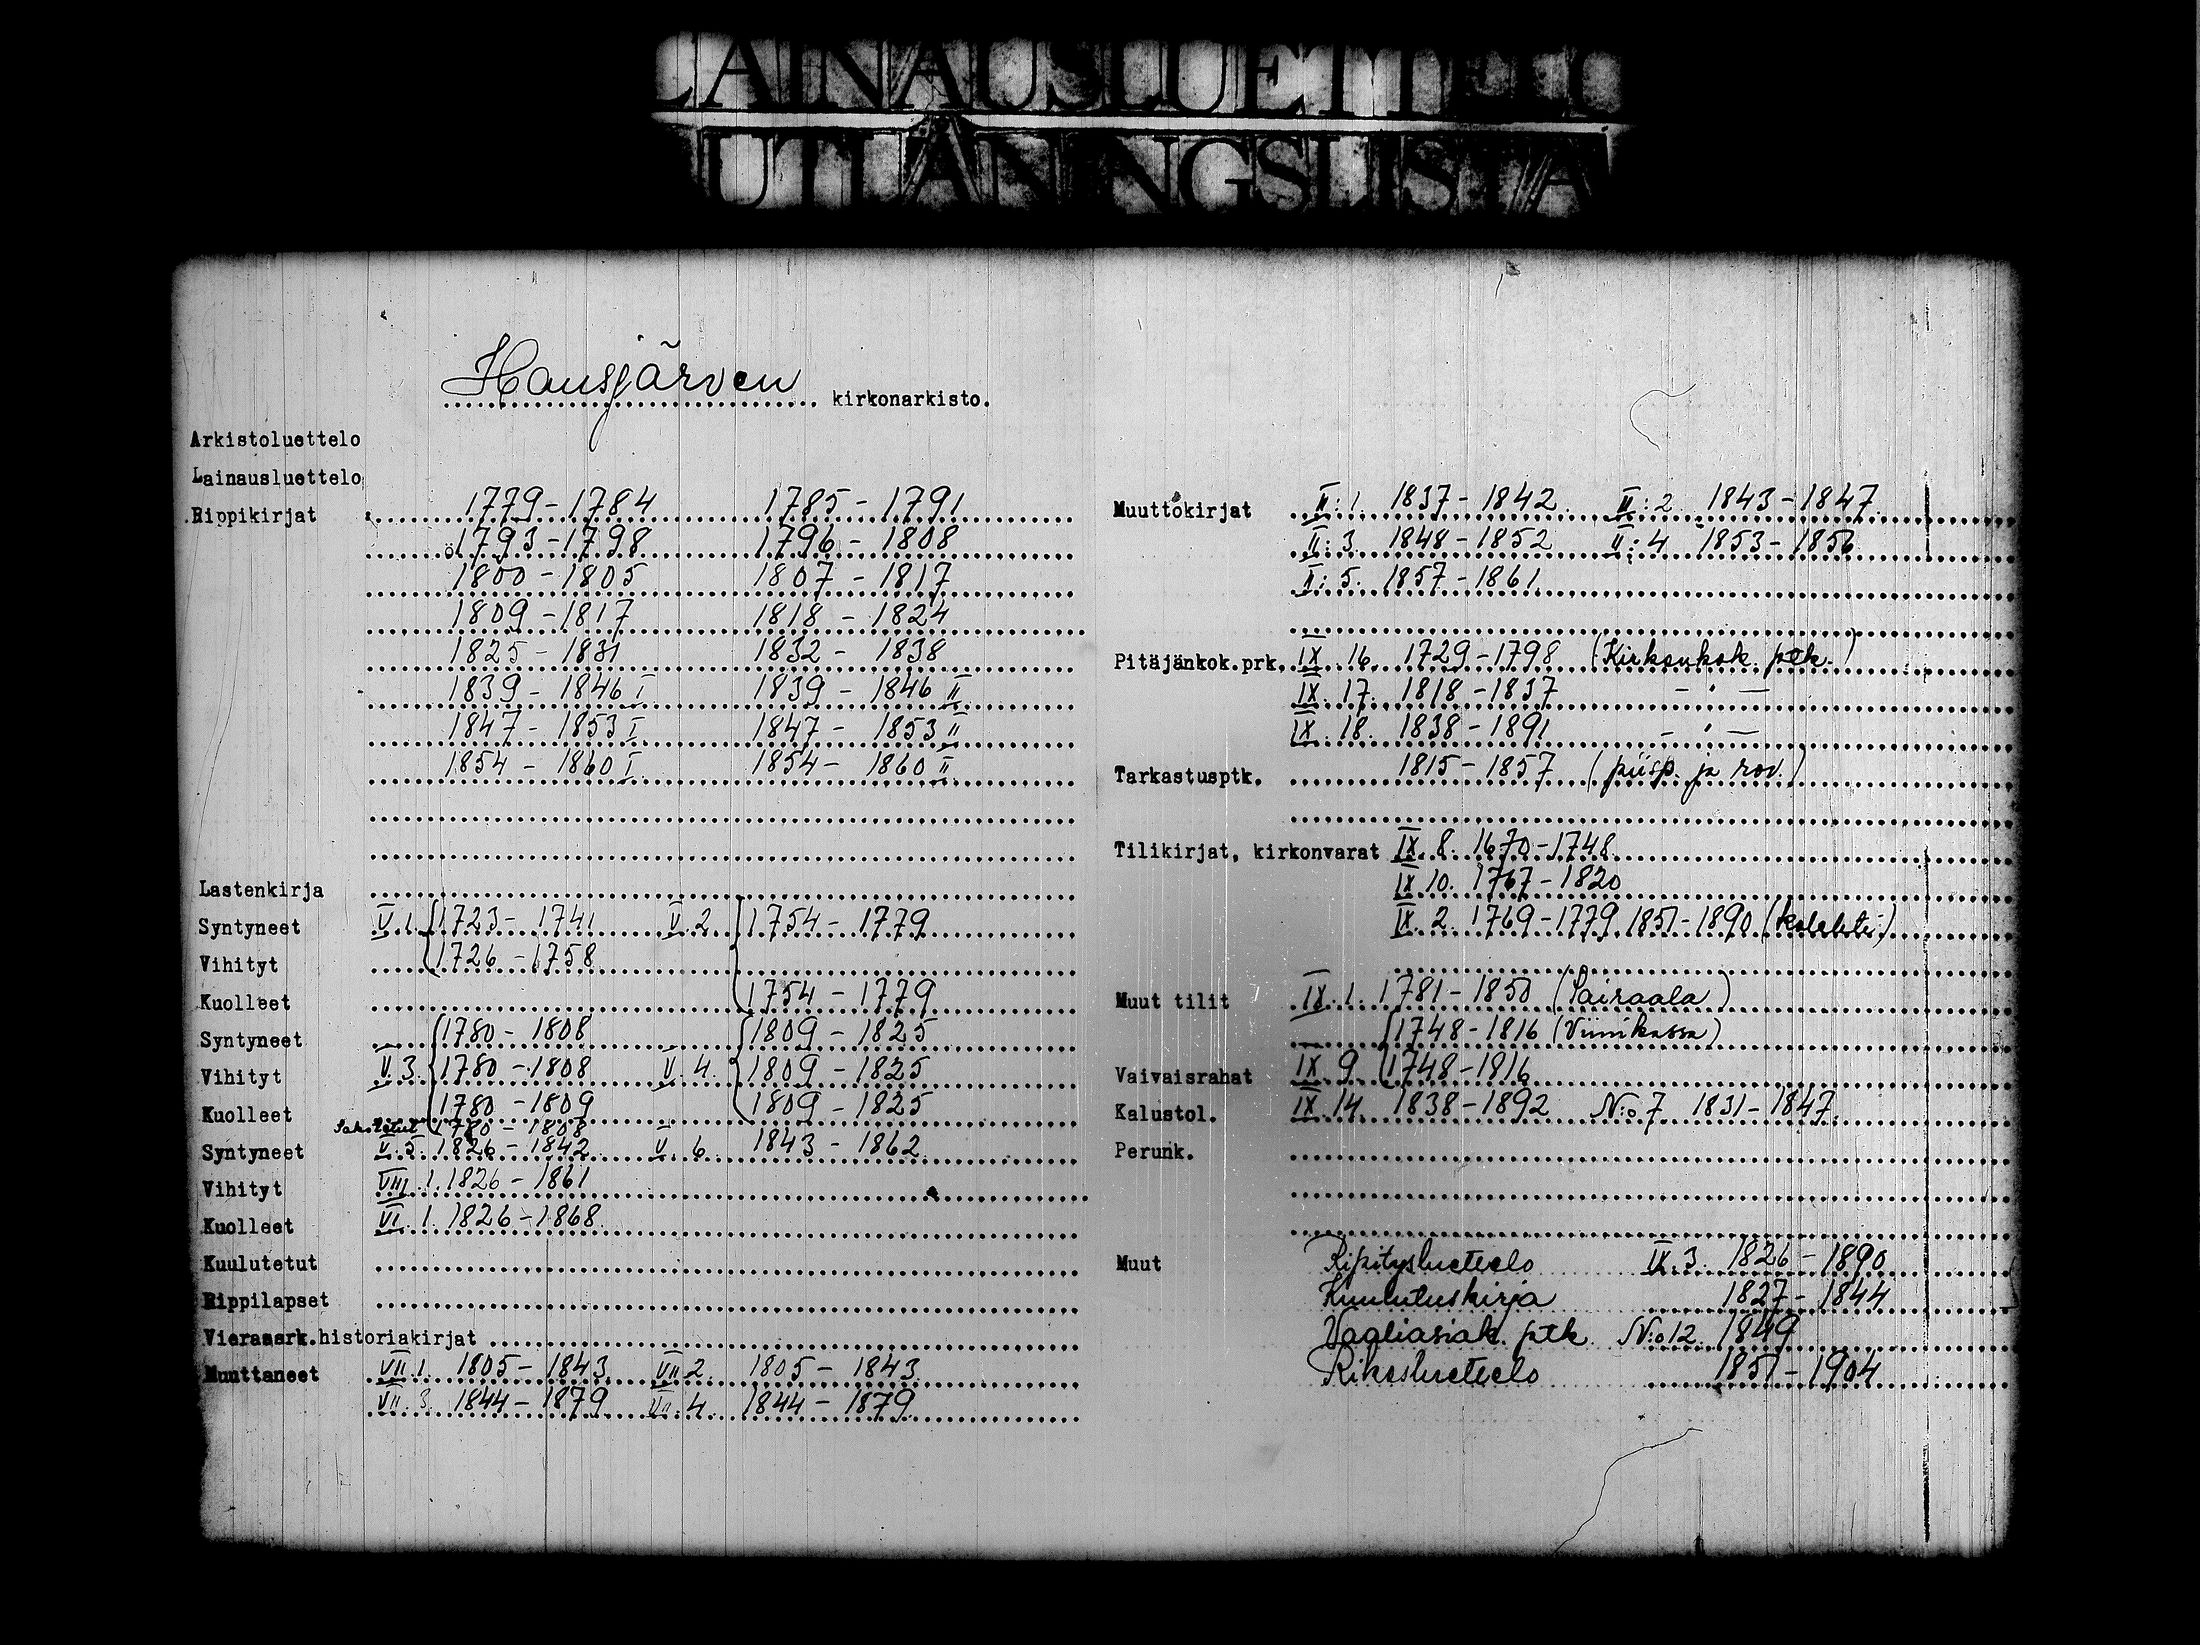 LAINAUSLUETTELO
UTLÅNINGSLISTA
Hausjärven kirkonarkisto.
Arkistoluettelo
Lainausluettelo
Rippikirjat 1779-1784 1785-1791
1793-1798 1796-1808
1800-1805 1807-1817
1809-1817 1818-1824
1825-1831 1832-1838
1839-1846 I 1839-1846 II
1847-1853 I 1847-1853 II
1854-1860 I 1854-1860 II
Lastenkirja
Syntyneet V.1. 1723-1741 V.2 1754-1779
Vihityt 1726-1758
Kuolleet 1754-1779
Syntyneet 1780-1808 1809-1825
Vihityt V.3. 1780-1808 V.4. 1809-1825
Kuolleet 1780-1809 1809-1825
1780-1808
Syntyneet V.5. 1826-1842 V.6 1843-1862
Vihityt VIII.1. 1826-1861
Kuolleet VI.1. 1826-1868
Kuulutetut
Rippilapset
Vierasark.historiakirjat
Muuttaneet VII.1. 1805-1843 VII.2. 1805-1843
VII.3. 1844-1879 VII.4. 1844-1879
Muuttokirjat II:1. 1837-1842 II:2 1843-1847
II:3 1848-1852 II:4 1853-1856
II:5. 1857-1861
Pitäjänkok.prk. IX.16. 1729-1798 (Kirkonkok. ptk.)
IX.17. 1818-1837 - " -
IX.18. 1838-1891 - " -
Tarkastusptk. 1815-1857 (piisp. ja rov.)
Tilikirjat, kirkonvarat IX.8. 1670-1748
IX.10. 1767-1820
IX.2. 1769-1779 1851-1890 (kolehti)
Muut tilit IX.1. 1781-1850 (Sairaala)
1748-1816 (Viinikassa)
Vaivaisrahat IX.9. 1748-1816
Kalustol. IX.14. 1838-1892 N:o 7 1831-1847
Perunk.
Muut Ripitysluettelo IX.3. 1826-1890
Kuulutuskirja 1827-1844
Vaaliasiak. ptk. N:o 12. 1849
Rikosluettelo 1851-1904